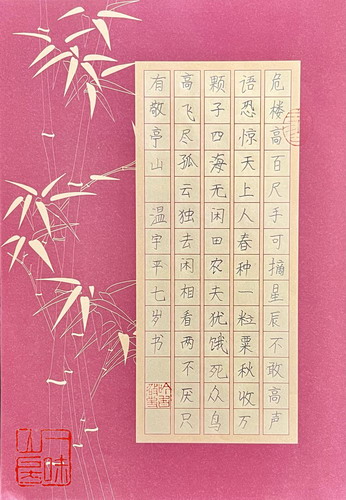 危楼高百尺手可摘星辰不敢高声
语恐惊天上人春种一粒粟秋收万
颗子四海无闲田农夫犹饿死众鸟
高飞尽孤云独去闲相看两不厌只
有敬亭山 温宇平七岁书